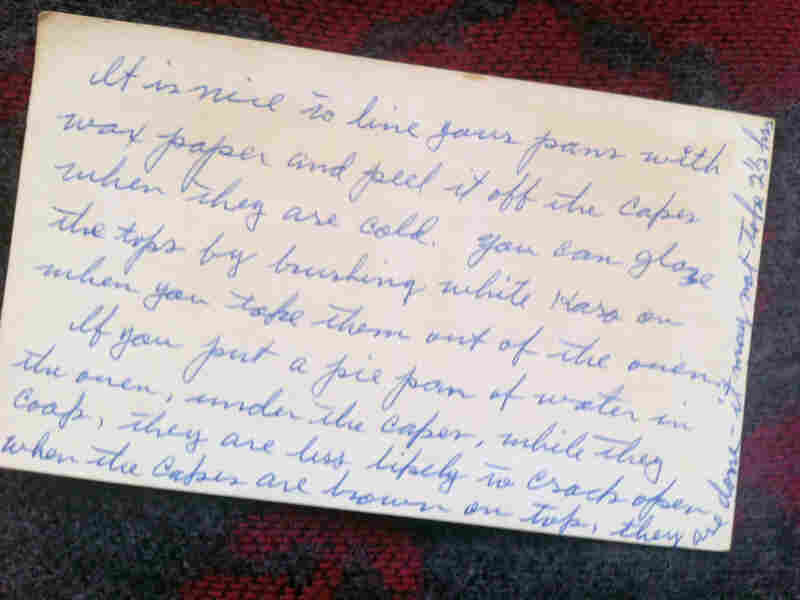 It is nice to line your pans with
wax paper and peel it off the cakes
when they are cold. You can glaze
the tops by brushing white Karo on
when you take them out of the oven.
If you put a pie pan of water in
the oven, under the cakes, while they
cook, they are less likely to crack open.
When the cakes are brown on top, they are done - it may not take 2½ hrs